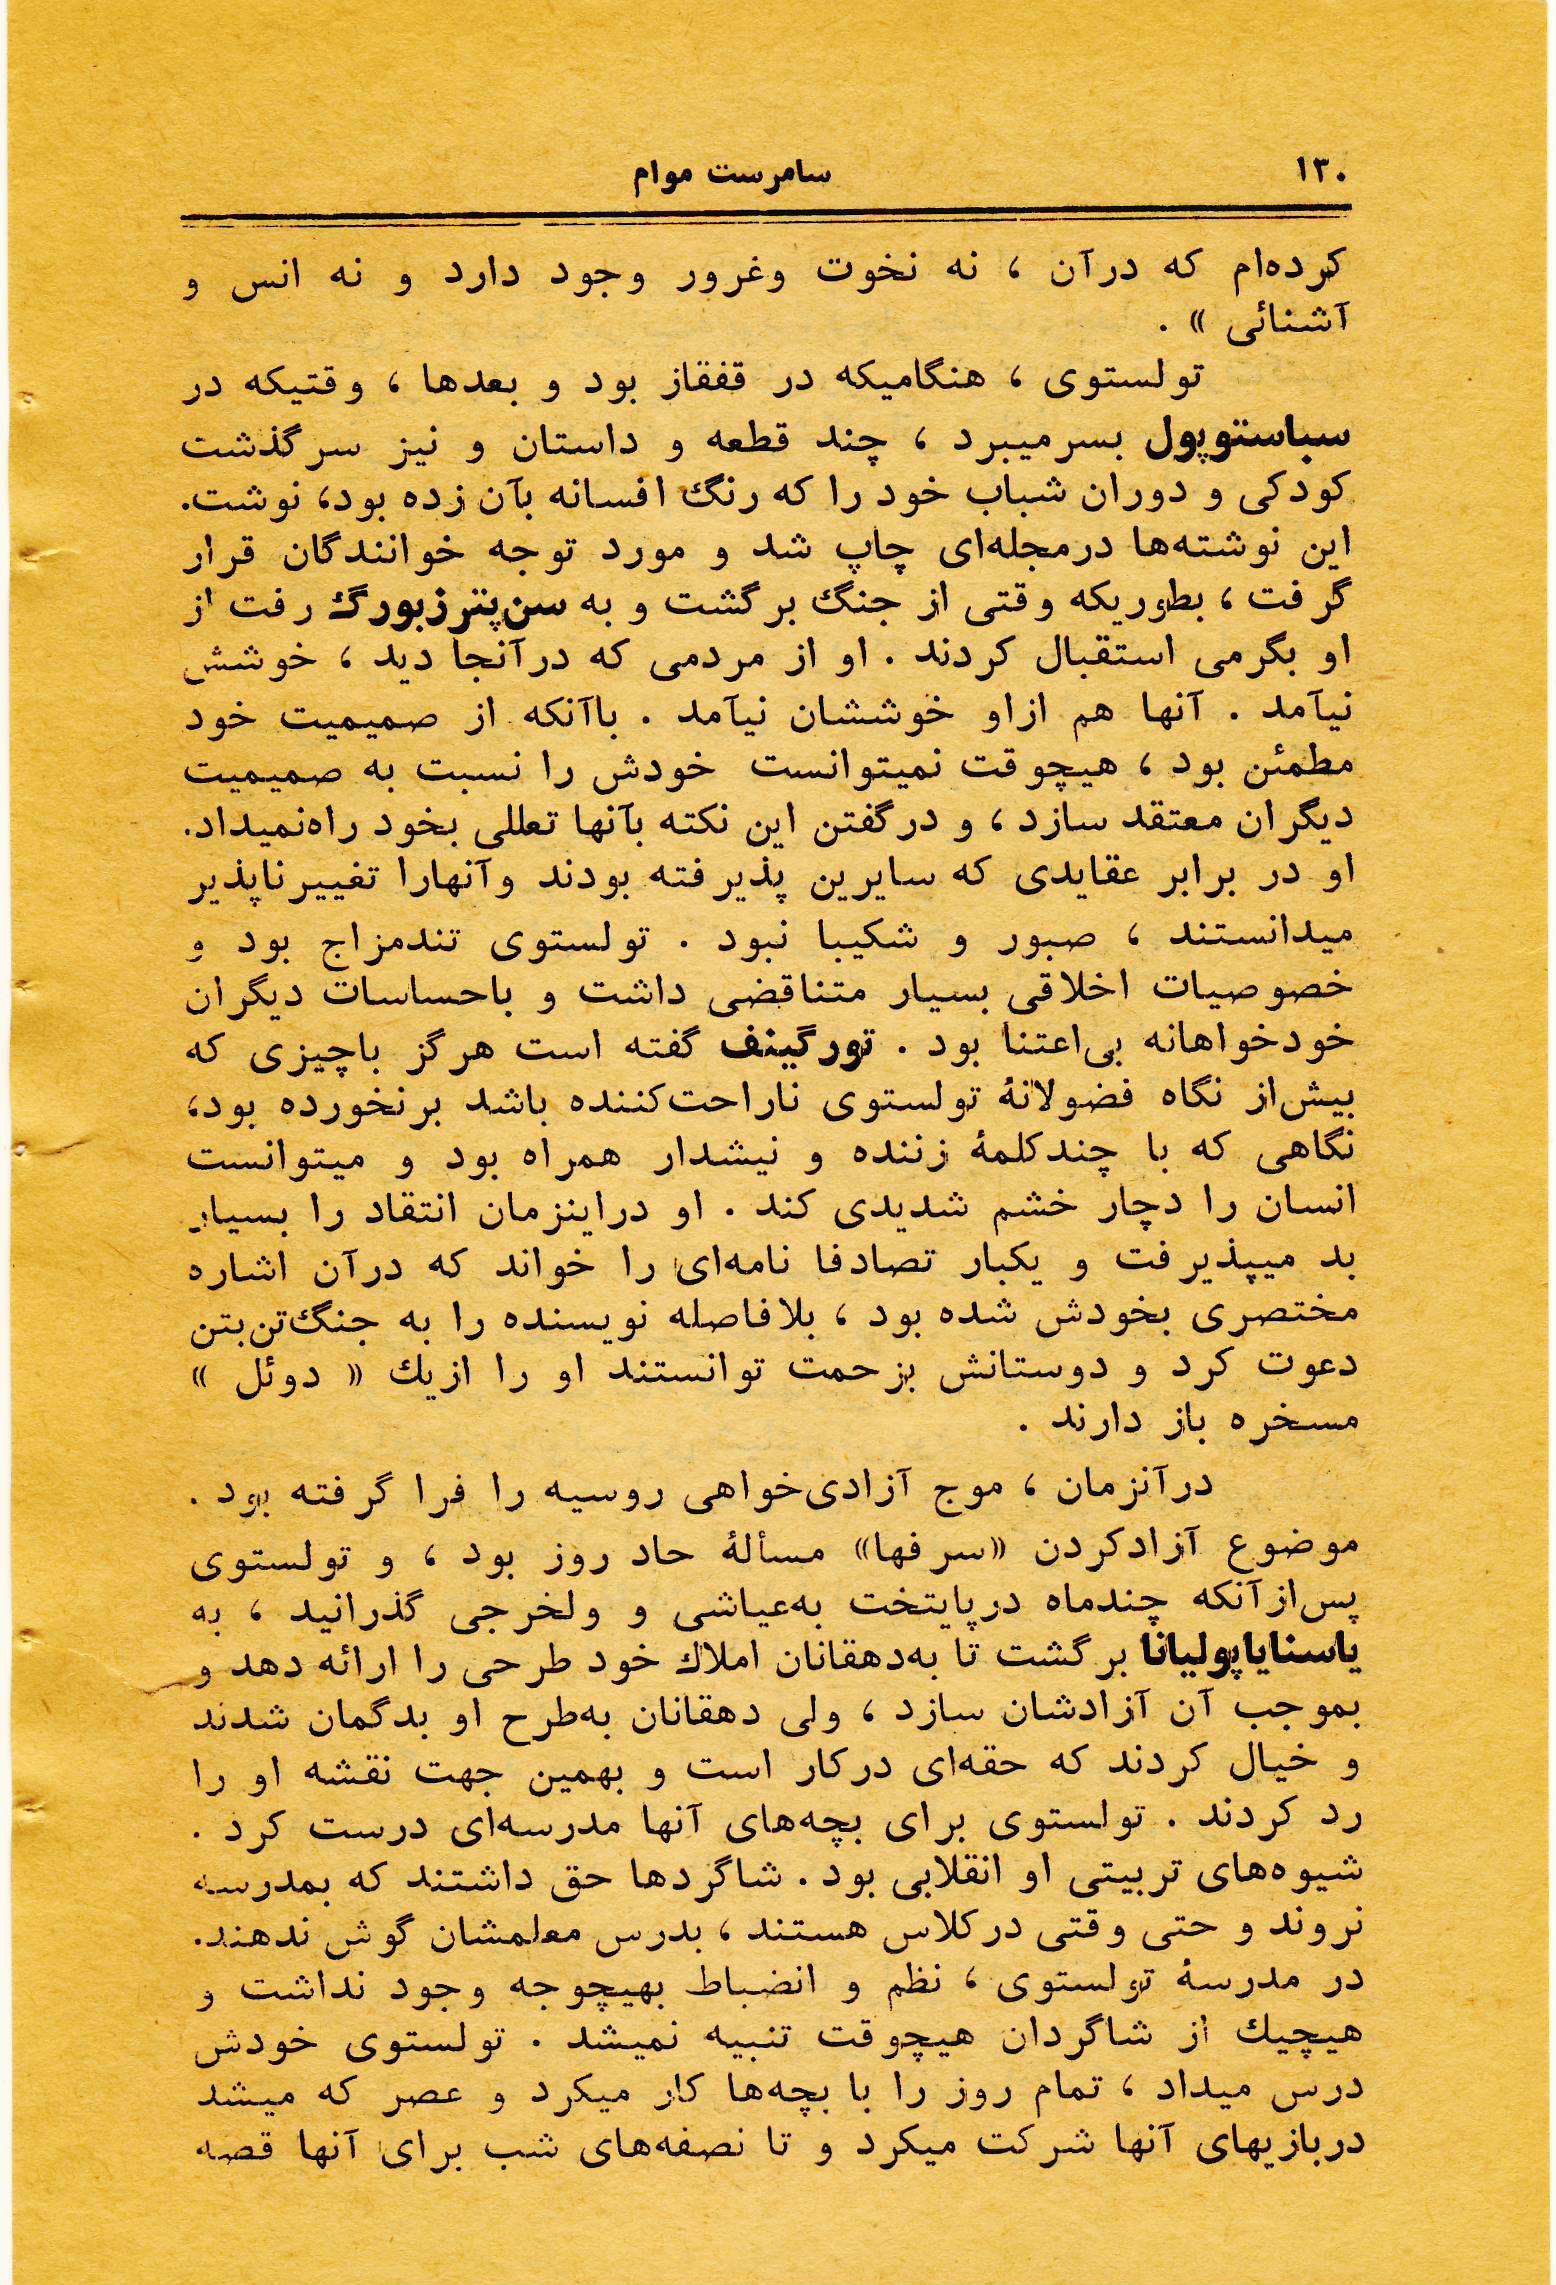 ۱۳۰
سامرست موام
کرده‌ام که درآن ، نه نخوت وغرور وجود دارد و نه انس و
آشنائی » .
تولستوی ، هنگامیکه در قفقاز بود و بعدها ، وقتیکه در
سباستوپول بسرمیبرد ، چند قطعه و داستان و نیز سرگذشت
کودکی و دوران شباب خود را که رنگ افسانه بآن زده بود، نوشت.
این نوشته‌ها درمجله‌ای چاپ شد و مورد توجه خوانندگان قرار
گرفت ، بطوریکه وقتی از جنگ برگشت و به سن‌پترزبورگ رفت از
او بگرمی استقبال کردند . او از مردمی که درآنجا دید ، خوشش
نیآمد . آنها هم ازاو خوششان نیآمد . باآنکه از صمیمیت خود
مطمئن بود ، هیچوقت نمیتوانست خودش را نسبت به صمیمیت
دیگران معتقد سازد ، و درگفتن این نکته بآنها تعللی بخود راه‌نمیداد.
او در برابر عقایدی که سایرین پذیرفته بودند وآنهارا تغییرناپذیر
میدانستند ، صبور و شکیبا نبود . تولستوی تندمزاج بود و
خصوصیات اخلاقی بسیار متناقضی داشت و باحساسات دیگران
خودخواهانه بی‌اعتنا بود . تورگینف گفته است هرگز باچیزی که
بیش‌از نگاه فضولانهٔ تولستوی ناراحت‌کننده باشد برنخورده بود،
نگاهی که با چندکلمهٔ زننده و نیشدار همراه بود و میتوانست
انسان را دچار خشم شدیدی کند . او دراینزمان انتقاد را بسیار
بد میپذیرفت و یکبار تصادفا نامه‌ای را خواند که درآن اشاره
مختصری بخودش شده بود ، بلافاصله نویسنده را به جنگ‌تن‌بتن
دعوت کرد و دوستانش بزحمت توانستند او را ازیك « دوئل »
مسخره باز دارند .
درآنزمان ، موج آزادی‌خواهی روسیه را فرا گرفته بود .
موضوع آزادکردن «سرفها» مسألهٔ حاد روز بود ، و تولستوی
پس‌ازآنکه چندماه درپایتخت به‌عیاشی و ولخرجی گذرانید ، به
یاسنایاپولیانا برگشت تا به‌دهقانان املاك خود طرحی را ارائه دهد و
بموجب آن آزادشان سازد ، ولی دهقانان به‌طرح او بدگمان شدند
و خیال کردند که حقه‌ای درکار است و بهمین جهت نقشه او را
رد کردند . تولستوی برای بچه‌های آنها مدرسه‌ای درست کرد .
شیوه‌های تربیتی او انقلابی بود . شاگردها حق داشتند که بمدرسه
نروند و حتی وقتی درکلاس هستند ، بدرس معلمشان گوش ندهند.
در مدرسهٔ تولستوی ، نظم و انضباط بهیچوجه وجود نداشت و
هیچیك از شاگردان هیچوقت تنبیه نمیشد . تولستوی خودش
درس میداد ، تمام روز را با بچه‌ها کار میکرد و عصر که میشد
دربازیهای آنها شرکت میکرد و تا نصفه‌های شب برای آنها قصه